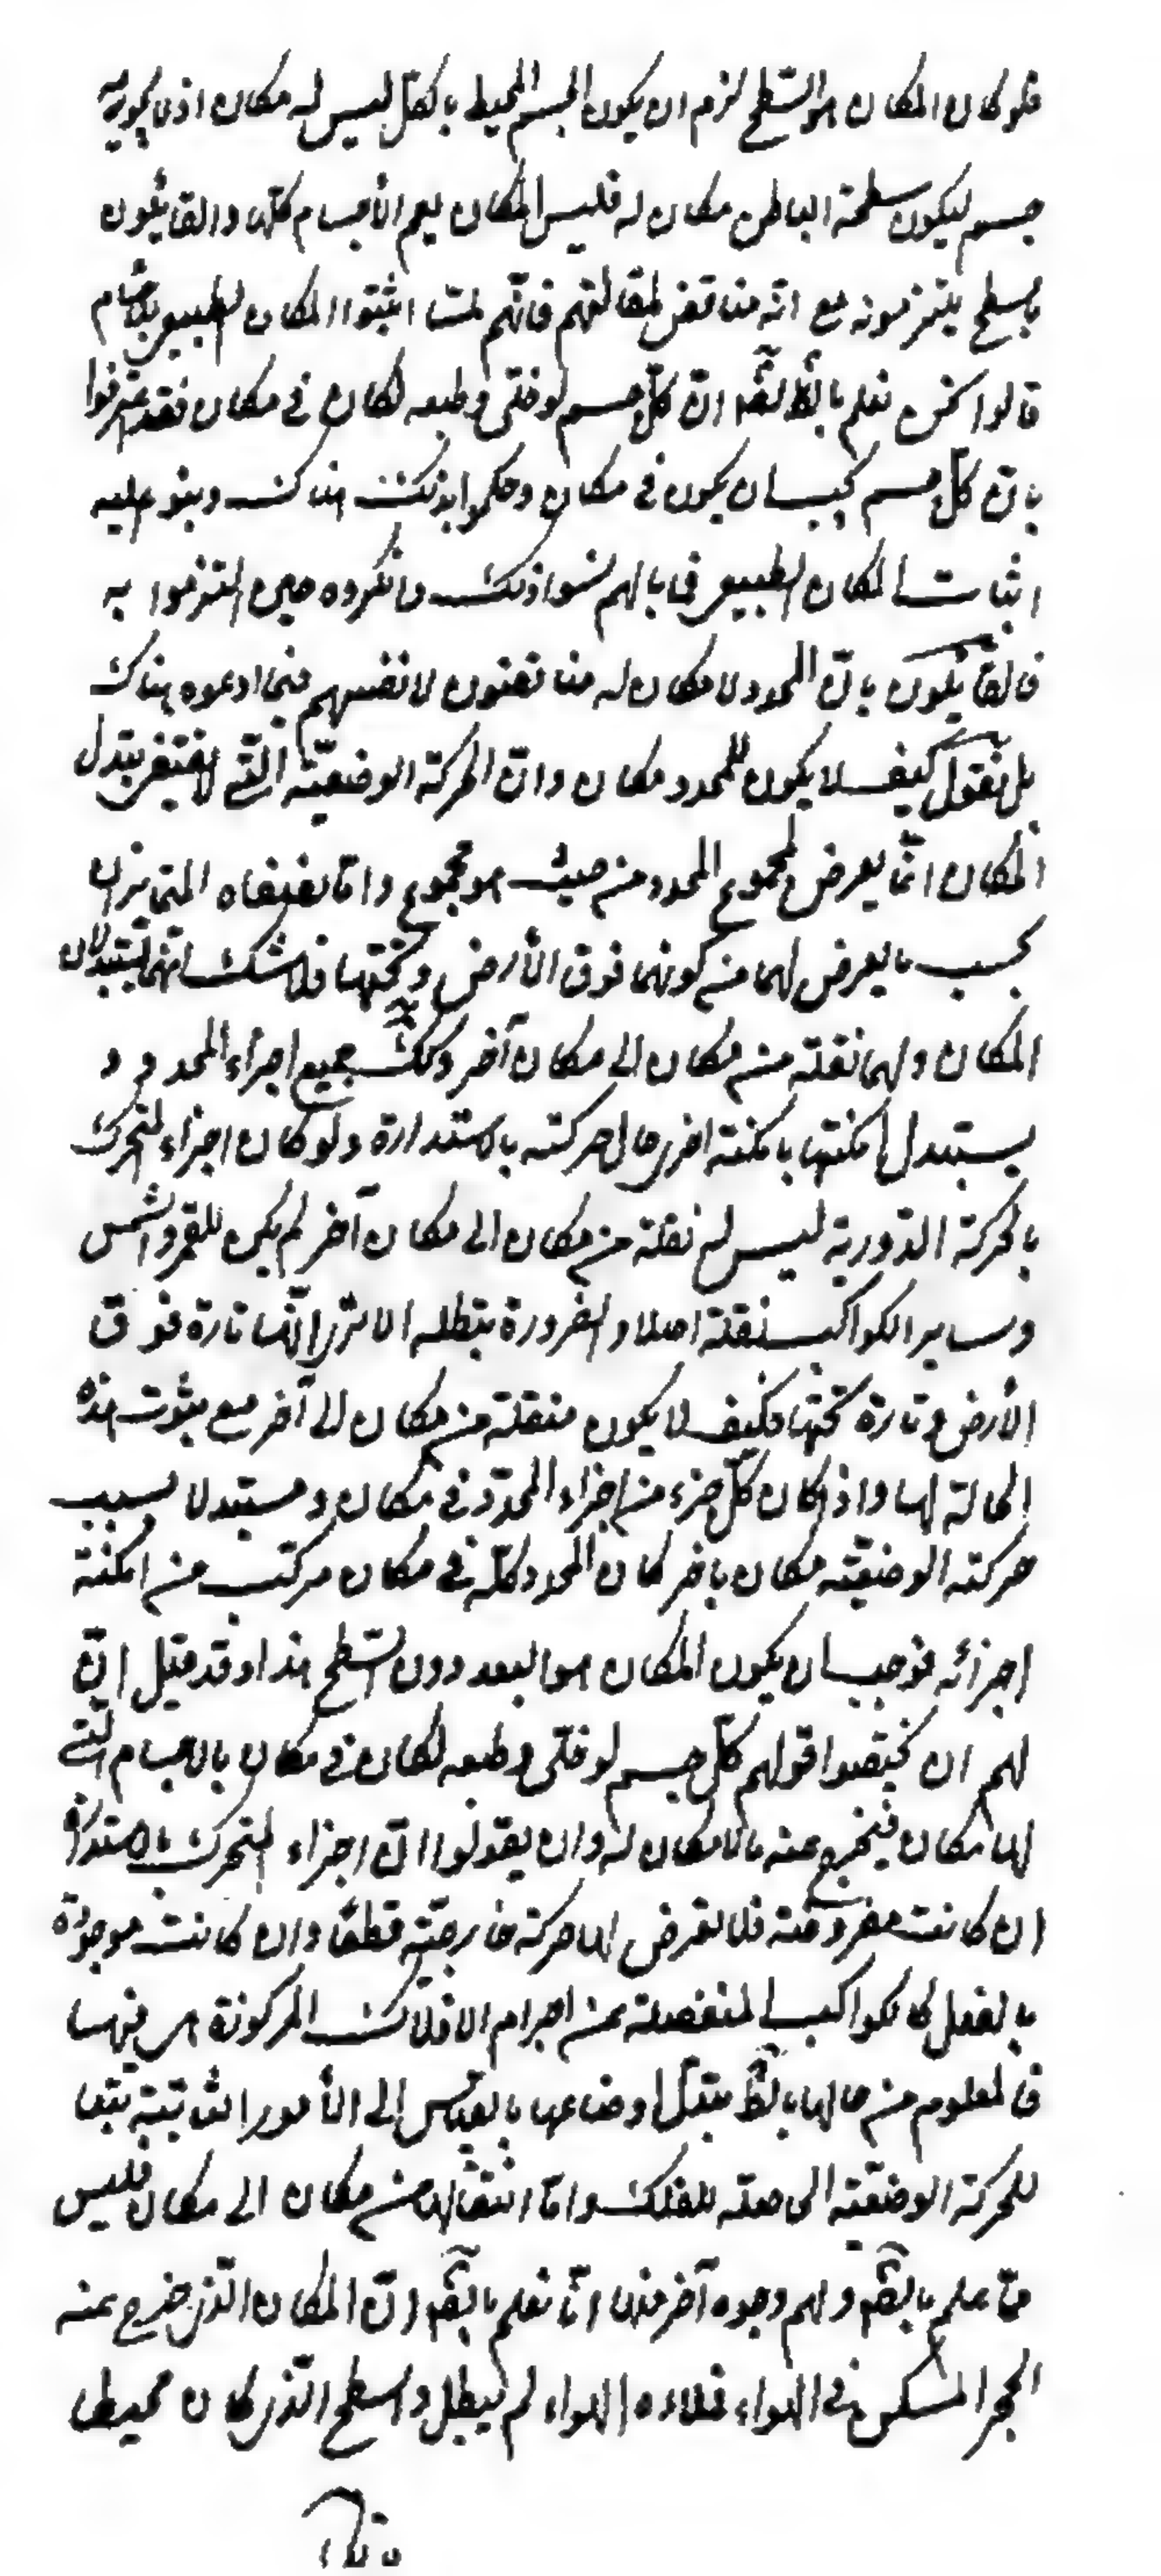 فلو كان المكان هو السّطح لزم ان يكون الجسم المحيط بالكلّ ليس له مكان اذ لا يحويه
جسم ليكون سطحه الباطن مكان له فليس المكان يعم الأجسام كلّها والقائلون
بالسطح يلتزمونه مع انّه مناقض لمقالتهم فانّهم لمّا اثبتوا المكان الطبيعي للأجسام
قالوا نحن نعلم بالضّرورة انّ كلّ جسم لو خلّى وطبعه لكان في مكان فقد اعترفوا
بانّ كلّ جسم يجب ان يكون في مكان وحكموا بذلك هناك وبنو عليه
اثبات المكان الطبيعي فما بالهم نسوا ذلك وانكروه حين التزموا به
فالقائلون بانّ المحدد لا مكان له مناقضون لانفسهم فيما ادعوه هناك
بل نقول كيف لا يكون للمحدد مكان وانّ الحركة الوضعيّة الّتي لا تقتضي تبدل
المكان انّما يعرض لمجموع المحدد من حيث هو مجموع وامّا نصفاه المتمايزان
بحسب ما يعرض لهما من كونهما فوق الأرض وتحتها فلا شك انّهما يتبدّلان
المكان ولهما نقلة من مكان الى مكان آخر وكك جميع اجزاء المحدد و
يستبدل امكنتها بامكنة اخرى حال حركته بالاستدارة ولو كان اجزاء المتحرك
بالحركة الدّورية ليس له نقلة من مكان الى مكان آخر لم يكن للقمر والشمس
وساير الكواكب نقلة اصلا والضرورة تبطله الا ترى انّها تارة فوق
الأرض وتارة تحتها فكيف لا يكون منتقلة من مكان الى آخر مع ثبوت هذه
الحالة لها واذا كان كلّ جزء من اجزاء المحدّد في مكان ومستبدلا بسبب
حركته الوضعيّة مكان باخر كان المحدد كلّه في مكان مركّب من امكنة
اجزائه فوجب ان يكون المكان هو البعد دون السّطح هذا وقد قيل انّ
لهم ان يخصّصوا قولهم كلّ جسم لو خلّى وطبعه لكان في مكان بالاجسام الّتي
لها مكان فيخرج عنه ما لا مكان له وان يقولوا انّ اجزاء المتحرك بالاستدارة
ان كانت مفروضة فلا تعرض لها حركة خارجيّة قطعًا وان كانت موجودة
بالفعل كالكواكب المنفصلة عن اجرام الافلاك المركوزة هي فيها
فالمعلوم من حالها بالضّ تبدّل اوضاعها بالقياس الى الأمور الثابتة تبعا
للحركة الوضعيّة الحاصلة للفلك وامّا انتقالها من مكان الى مكان فليس
ممّا علم بالضّم ولهم وجوه آخر منها انّا نعلم بالضّم انّ المكان الّذي خرج عنه
الحجر المسكن في الهواء فملاءه الهواء لم يبطل والسطح الّذي كان محيطا